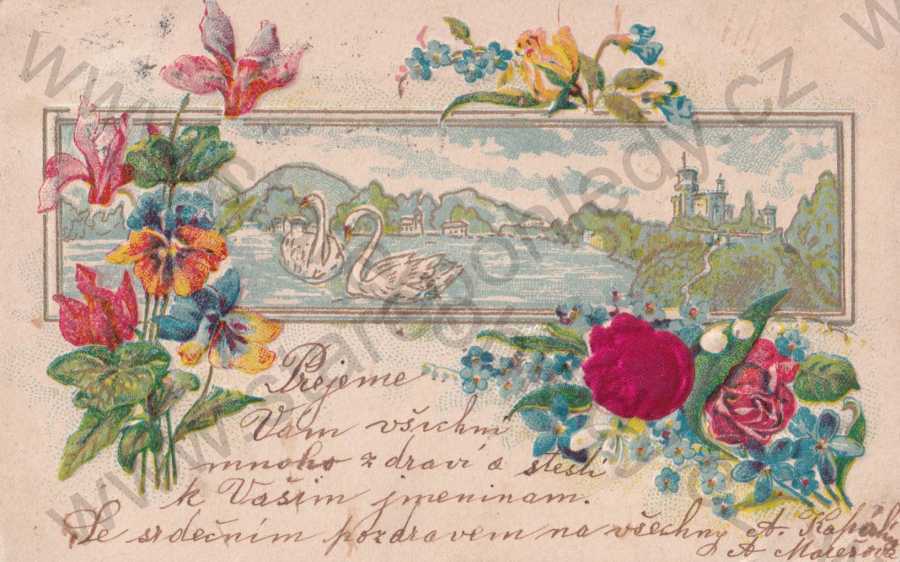 Přejeme
Vám všichni
mnoho zdraví a stěstí
k Vašim jmeninam.
Se srdečním pozdravem na všechny A.
A
www.starepohledy.cz